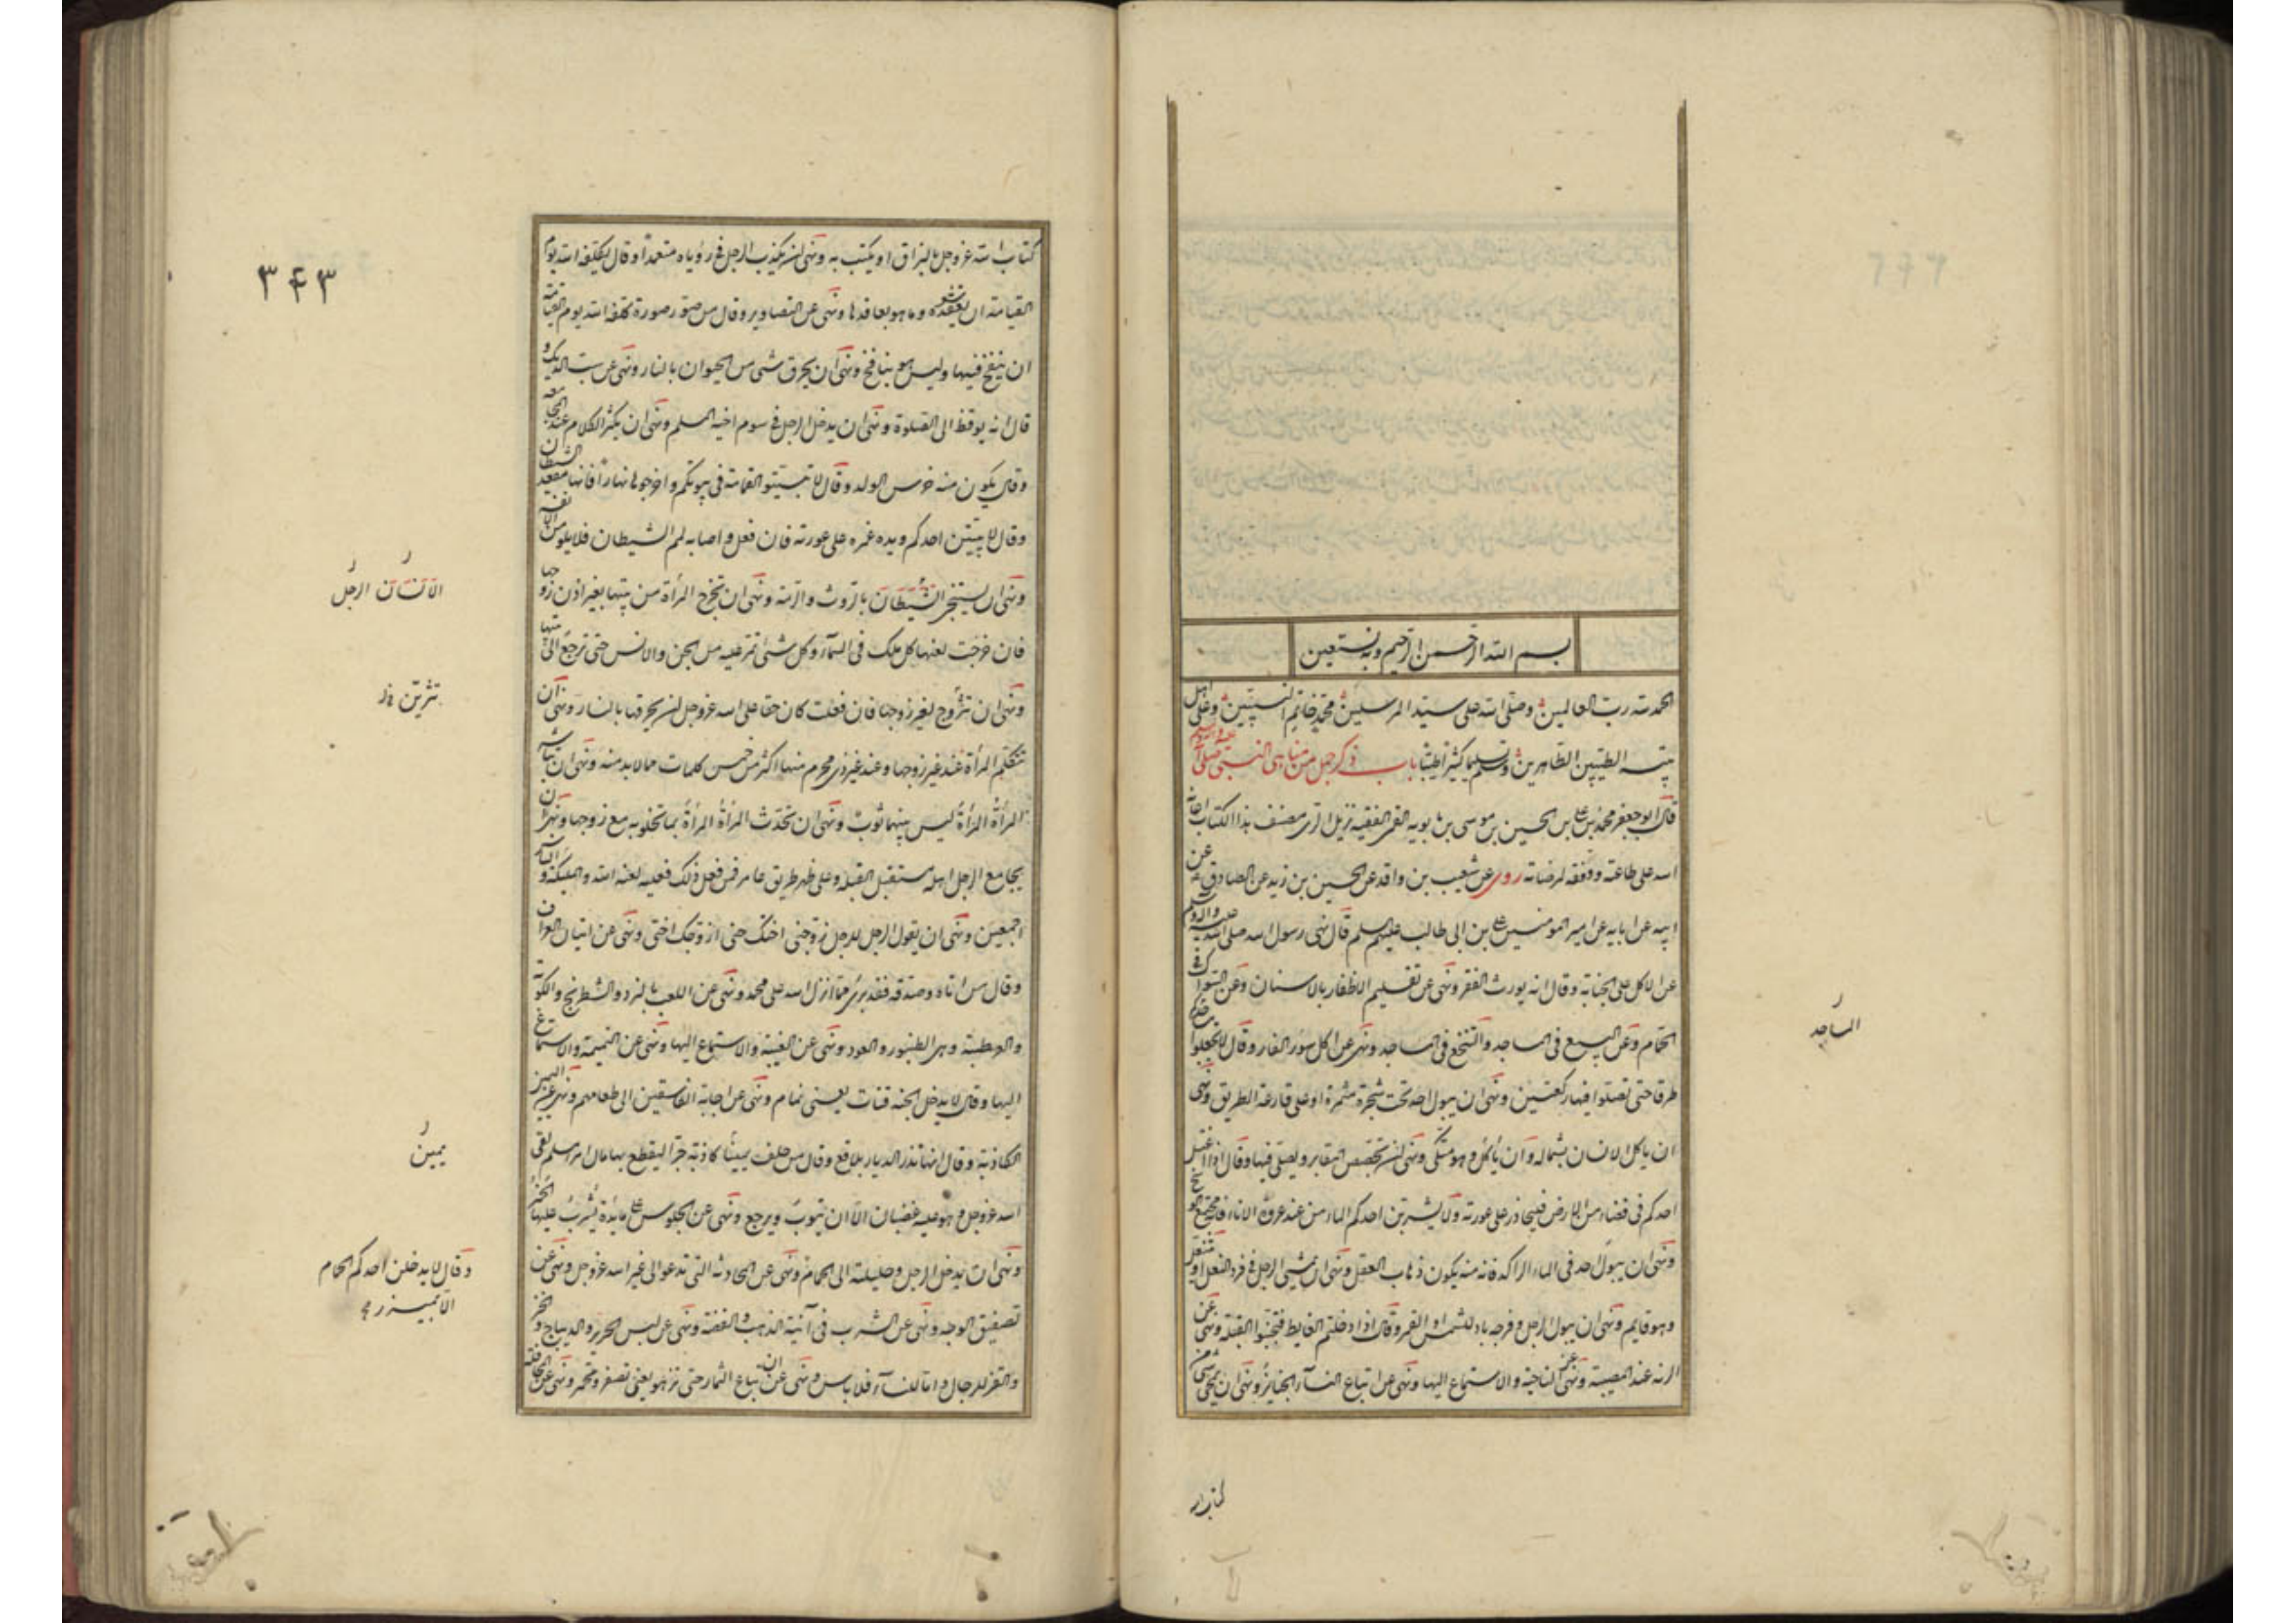 بسم الله الرحمن الرحيم وبه نستعين
الحمد لله رب العالمين وصلى الله على سيد المرسلين محمد خاتم النبيين وعلى اهل
بيته الطيبين الطاهرين وسلم تسليما كثيرا طيبا باب ذكر جمل من مناهى النبى صلى الله عليه وآله وسلم
قال ابو جعفر محمد بن على بن الحسين بن موسى بن بابويه القمى الفقيه نزيل الرى مصنف هذا الكتاب اعانه
الله على طاعته ووفقه لمرضاته روى عن شعيب بن واقد عن الحسين بن زيد عن الصادق عن
ابيه عن ابائه عن امير المؤمنين على بن ابى طالب عليهم السلم قال نهى رسول الله صلى الله عليه وآله وسلم
عن الاكل على الجنابة وقال انه يورث الفقر ونهى عن تقليم الاظفار بالاسنان وعن السواك فى
الحمام وعن البيع فى المساجد والتنخع فى المساجد ونهى عن اكل سؤر الفار وقال لا تجعلوا المساجد
طرقا حتى تصلوا فيها ركعتين ونهى ان يبول احد تحت شجرة مثمرة او على قارعة الطريق ونهى
ان ياكل الانسان بشماله وان يأكل وهو متكى ونهى ان تجصص المقابر ويصلى فيها وقال اذا اغتسل
احدكم فى فضاء من الارض فليحاذر على عورته ولا يشربن احدكم الماء من عند عروة الاناء فانه مجتمع الوسخ
ونهى ان يبول احد فى الماء الراكد فانه منه يكون ذهاب العقل ونهى ان يمشى الرجل فى فرد النعل او يتنعل
وهو قايم ونهى ان يبول الرجل وفرجه باد للشمس او القمر وقال اذا دخلتم الغايط فتجنبوا القبلة ونهى عن
الرنة عند المصيبة ونهى عن النياحة والاستماع اليها ونهى عن اتباع النسآء الجنايز ونهى ان يمحى شىء من
المساجد
كتاب الله
٣٤٣
كتاب الله عز وجل بالبزاق او يكتب به ونهى ان يكذب الرجل فى رؤياه متعمدا وقال يكلفه الله يوم
القيامة ان يعقد شعيرة وما هو بعاقدها ونهى عن التصاوير وقال من صور صورة كلفه الله يوم القيامة
ان ينفخ فيها وليس هو بنافخ ونهى ان يحرق شىء من الحيوان بالنار ونهى عن سب الديك و
قال انه يوقظ الى الصلوة ونهى ان يدخل الرجل فى سوم اخيه المسلم ونهى ان يكثر الكلام عند المجامعة
وقال يكون منه خرس الولد وقال لا تبيتوا القمامة فى بيوتكم واخرجوها نهارا فانها مقعد الشيطان
وقال لا يبيتن احدكم ويده غمرة على عورته فان فعل واصابه لمم الشيطان فلا يلومن الا نفسه
ونهى ان يستنجى الشيطان بالروث والرمة ونهى ان تخرج المرأة من بيتها بغير اذن زوجها
فان خرجت لعنها كل ملك فى السمآء وكل شىء تمر عليه من الجن والانس حتى ترجع الى بيتها
ونهى ان تتزوج لغير زوجها فان فعلت كان حقا على الله عز وجل ان يحرقها بالنار ونهى ان
تتكلم المرأة عند غير زوجها وعند غير ذى محرم منها اكثر من خمس كلمات مما لابد منه ونهى ان تباشر
المرأة المرأة ليس بينهما ثوب ونهى ان تحدث المرأة المرأة بما تخلو به مع زوجها ونهى ان
يجامع الرجل اهله مستقبل القبلة وعلى ظهر طريق عامر فمن فعل ذلك فعليه لعنة الله والمليكة والناس
اجمعين ونهى ان يقول الرجل للرجل زوجنى اختك حتى ازوجك اختى ونهى عن اتيان العراف
وقال من اتاه وصدقه فقد برئ مما انزل الله على محمد ونهى عن اللعب بالنرد والشطرنج والكوبة
والعرطبة وهى الطنبور والعود ونهى عن الغيبة والاستماع اليها ونهى عن النميمة والاستماع
اليها وقال لا يدخل الجنة قتات يعنى نمام ونهى عن اجابة الفاسقين الى طعامهم ونهى عن اليمين
الكاذبة وقال انها تذر الديار بلاقع وقال من حلف يمينا كاذبة صبرا ليقطع بها مال امرء مسلم لقى
الله عز وجل وهو عليه غضبان الا ان يتوب ويرجع ونهى عن الجلوس على مائدة يشرب عليها الخمر
ونهى ان يدخل الرجل وحليلته الى الحمام ونهى عن المحادثة التى تدعو الى غير الله عز وجل ونهى عن
تصفيق الوجه ونهى عن الشرب فى آنية الذهب والفضة ونهى عن لبس الحرير والديباج والخز
والقز للرجال واما للنسآء فلا باس ونهى عن ان تباع الثمار حتى تزهو يعنى تصفر وتحمر ونهى عن المحاقلة
الانسان الرجل
تتزين
يمين
وقال لا يدخلن احدكم الحمام
الا بميزر